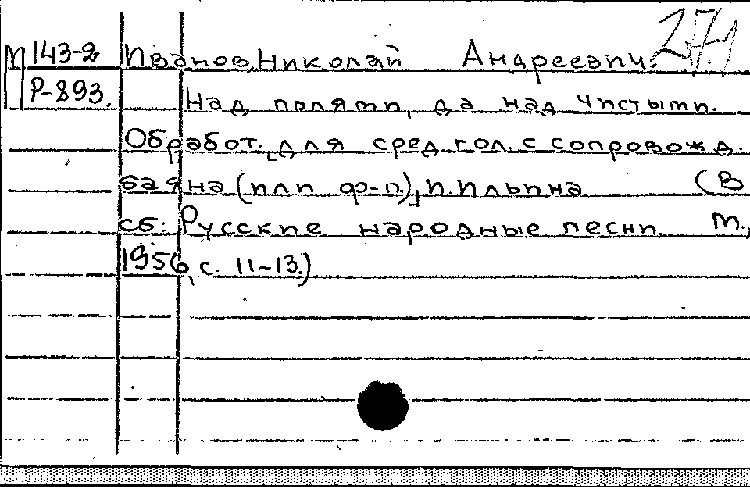 271
П 143-2 Иванов, Николай Андреевич.
Р-893. Над полями, да над чистыми.
Обработ. для сред. гол. с сопровожд.
баяна (или ф-п.) И. Ильина (В
сб: Русские народные песни М.,
1956, с. 11-13.)